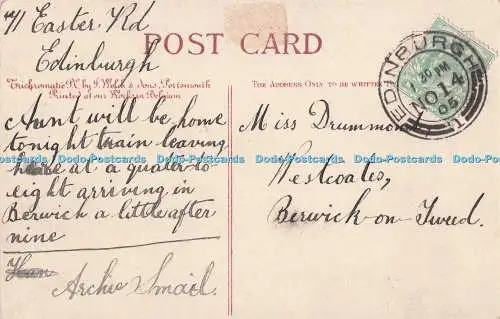 41 Easter Rd
Edinburgh
POST CARD
Trichromatic P.C. by J. Welch & Sons, Portsmouth
Printed at our Works in Belgium
THE ADDRESS ONLY TO BE WRITTEN
EDINBURGH
1.30 PM
NO 14
05
1
Aunt will be home
tonight train leaving
here at a quater to
eight arriving in
Berwick a little after
nine
Archie Smail
Miss Drummond
Westcoates,
Berwick-on-Tweed.
Dodo-Postcards Dodo-Postcards Dodo-Postcards Dodo-Postcards Dodo-Postcards Dodo-Postcards